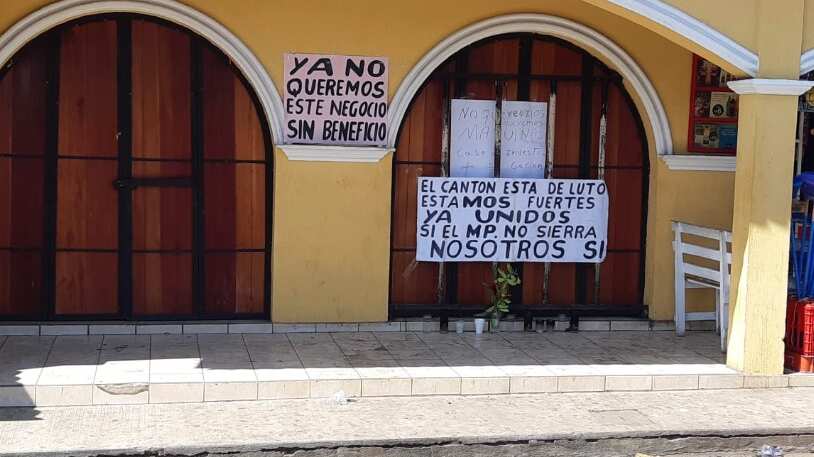 YA NO
QUEREMOS
ESTE NEGOCIO
SIN BENEFICIO
NOS
MA UNO
Caso Investi
+ gacion
EL CANTON ESTA DE LUTO
ESTAMOS FUERTES
YA UNIDOS
SI EL MP. NO SIERRA
NOSOTROS SI